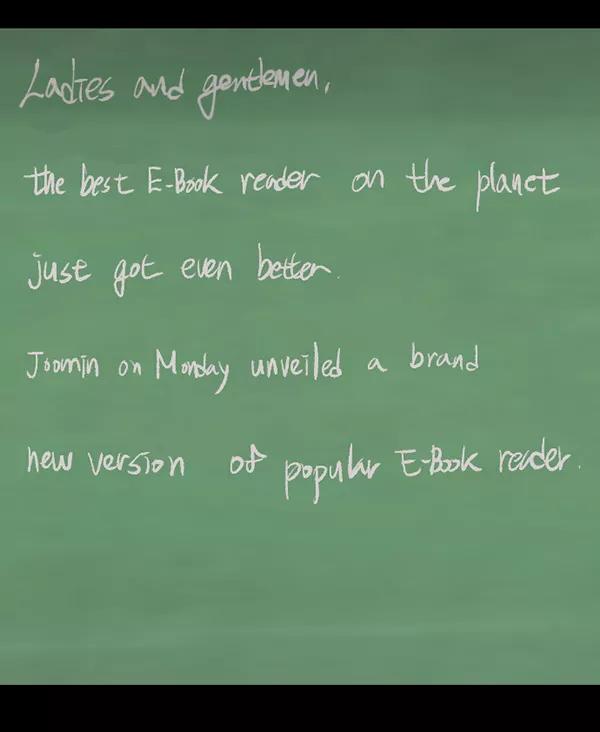 Ladies and gentlemen,
the best E-Book reader on the planet
just got even better.
Joomin on Monday unveiled a brand
new version of popular E-Book reader.